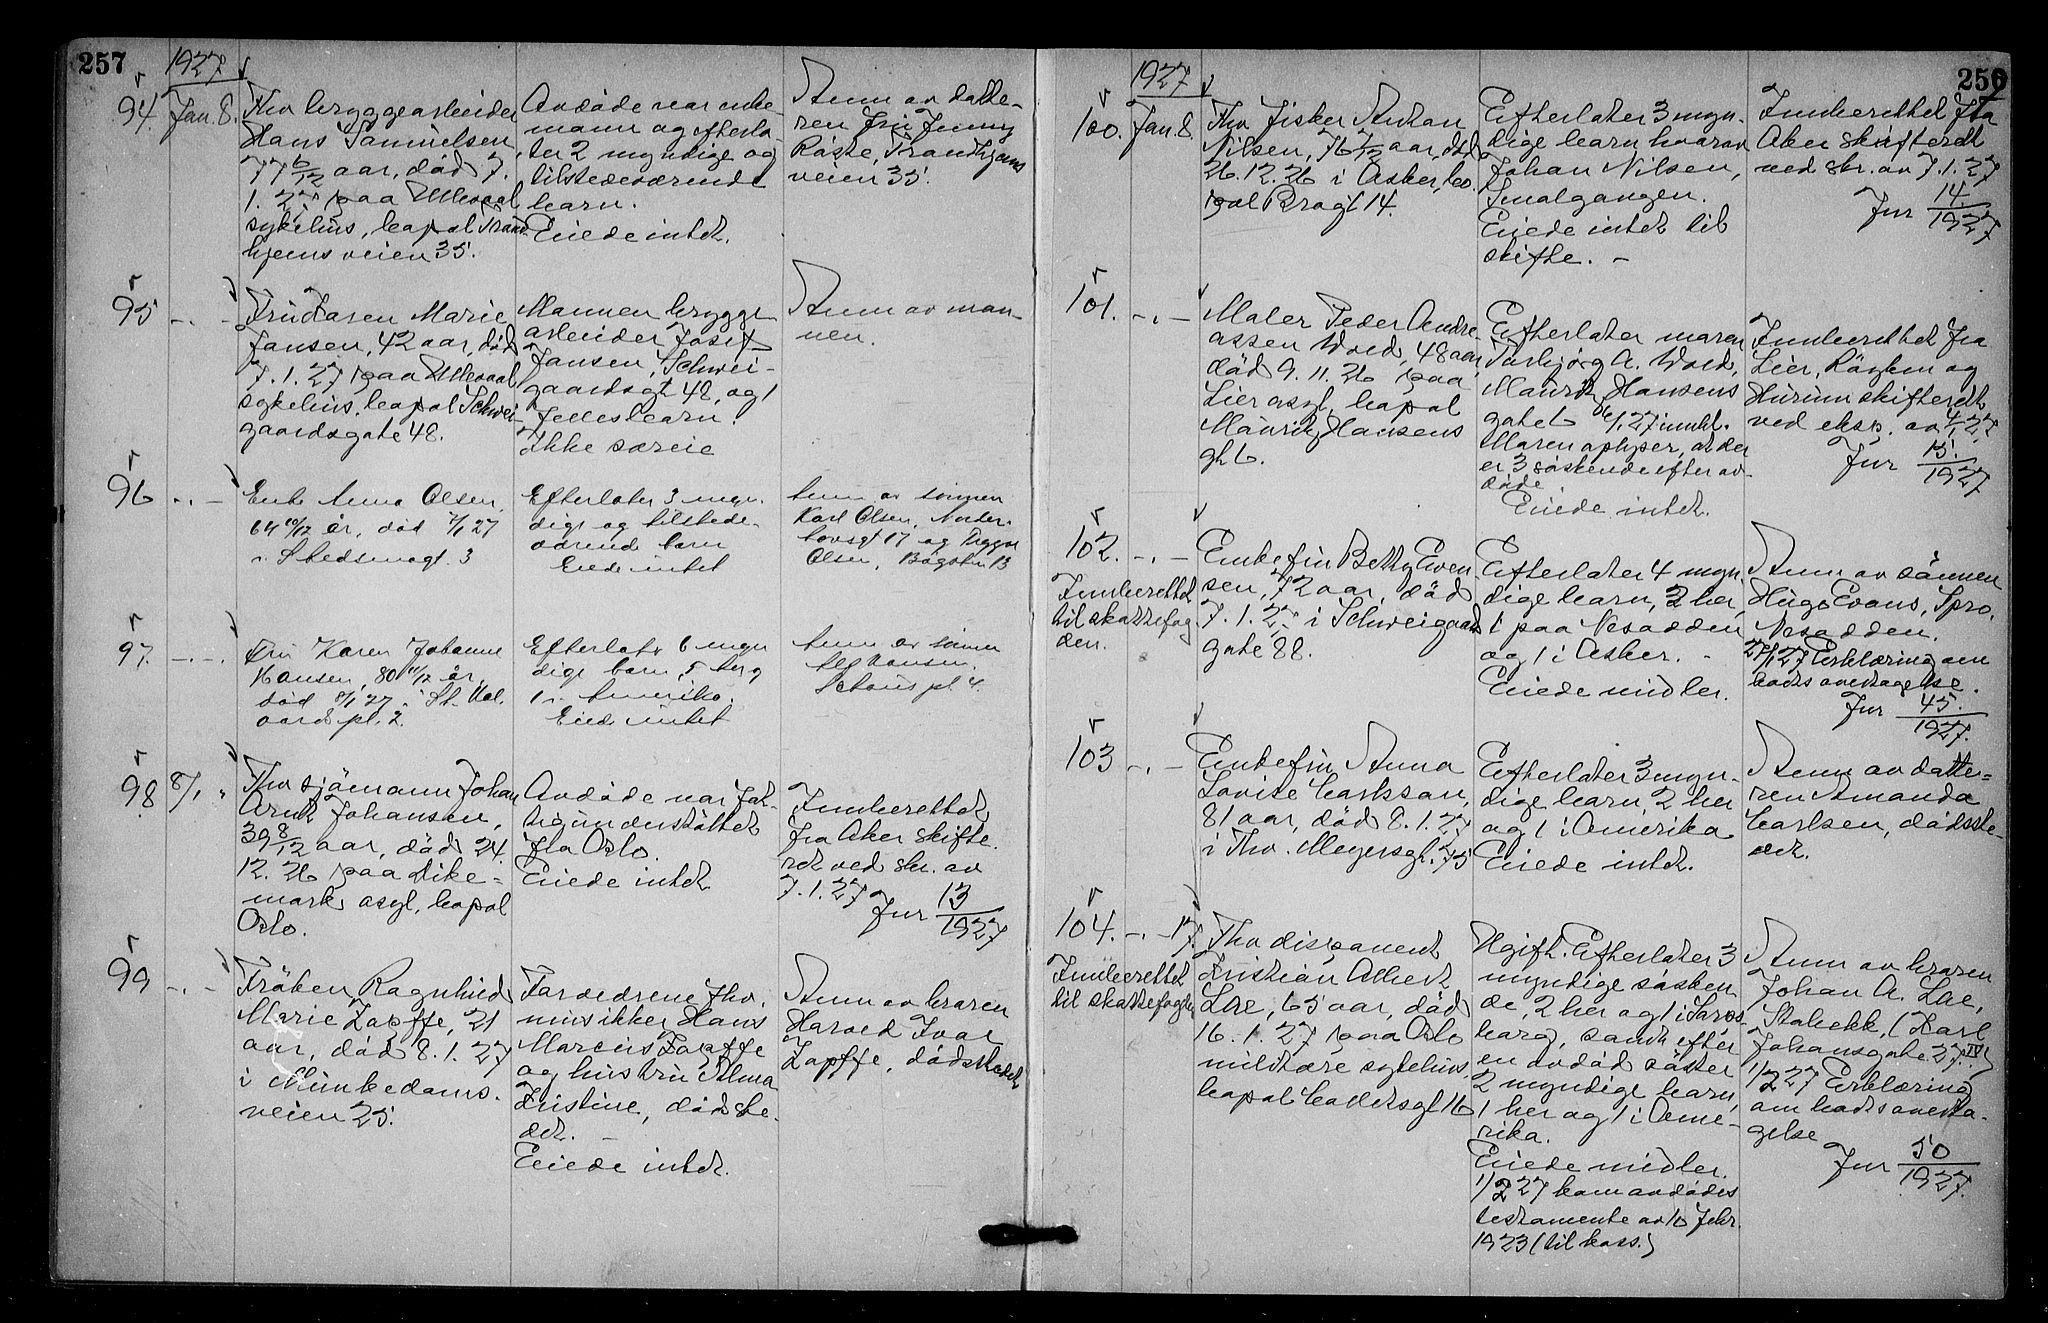 257
1927
94.
Jan. 8.
Fhv bryggearbeider
Hans Samuelsen,
77 6/12 aar, død 7.
1. 27 paa Ullevaal
sykehus, bopal Trond
hjemsveien 35.
Avdøde var enke-
mann og efterla-
ter 2 myndige og
tilstedeværende
barn.
Eiede intet.
Anm av datte-
ren Jenny
Røste, Trondhjems
veien 35.
95
-.-
Fru Karen Marie
Jansen, 42 aar, død
7.1.27 paa Ullevaal
sykehus, bopal Schwei
gaardsgate 48.
Mannen brygge
arbeider Josef
Jansen, Schwei-
gaardsgt 48, og 1
fellesbarn.
Ikke særeie
Anm av man-
nen.
96
-.-
Enke Anna Olsen,
64 10/12 år, død 7/1 27
i Stedsmogt. 3
Efterlater 3 myn-
dige og tilstede-
værende barn
Eiede intet
Anm av sønnen
Karl Olsen,
17 og Trygve
Olsen, 13
97.
-.-
Fru Karen Johanne
Hansen, 80 11/12 år,
død 8/1 27 i St. Hal.
vards pl. 2.
Efterlater 6 myn
dige barn, 5 her og
1 i Amerika.
Eiede intet
Anm av sønnen
Hansen,
Schous pl. 4.
98
8/1 "
Fhv sjømann Johan
Arnt Johansen,
39 8/12 aar, død 24.
12. 26 paa Dike-
mark asyl, bopal
Oslo.
Avdøde var fat-
tigunderstøttet
fra Oslo.
Eiede intet
Innberettet
fra Aker skifte-
ret ved skr. av
7.1.27
Jnr 13/1927
99
-.-
Frøken Ragnhild
Marie Zapffe, 21
aar, død 8.1.27
i Munkedams-
veien 25.
Forældrene fhv.
musikker Hans
Marcus Zapffe
og hustru Alma
Kristine, dødste-
det. -
Eiede intet.
Anm av broren
Harald Ivar
Zapffe, dødsstedet
256
1927
100.
Jan. 8
Fhv fisker Anton
Nilsen, 76 7/12 aar, død
26.12.26 i Asker, bo-
pal Brogt 14.
Efterlater 3 myn-
dige barn hvorav
Johan Nilsen,
Smalgangen.
Eiede intet til
skifte. -
Innberettet fra
Aker skifterett
ved skr. av 7.1.27
Jnr 14/1927
101.
-.-
Maler Peder Andre-
assen Wold, 48 aar
død 9.11.26 paa
Lier asyl, bopal
Maurits Hansens
gt 6.
Efterlater moren
Torbjørg A. Wold,
Maurits Hansens
gate 6 6/1 27 innkt.
Moren oplyser, at der
er 3 søskende efter av-
døde
Eiede intet.
Innberettet fra
Lier, Røyken og
Hurum skifterett
ved eksp. av 4/1 27
Jnr 15/1927
102.
-.-
Innberettet
til skattefog
den.
Enkefru Betty Even-
sen, 72 aar, død
7.1.27 i Schweigaards
gate 88.
Efterlater 4 myn-
dige barn, 2 her,
1 paa Nesodden
og 1 i Asker. -
Eiede midler.
Anm av sønnen
Hugo Evans, Spro,
Nesodden.
27/1 27 Erklæring om
bodts overtagelse.
Jnr 45/1927.
103
-.-
Enkefru Anna
Lovise Carlsson,
81 aar, død 8.1.27
i Thv. Meyersgt. 75
Efterlater 3 myn-
dige barn, 2 her
og 1 i Amerika
Eiede intet.
Anm av datte-
ren Amanda
Carlsen, dødsste-
det.
104.
-.- 17.
Innberettet
til skattefogden
Fhv disponent
Kristian Albert
Lae, 65 aar, død
16.1.27 paa Oslo
militære sykehus,
bopal Calmeyersgt 16
Ugift. Efterlater 3
myndige søsken
de, 2 her og 1 i Sarps-
borg, samt efter
en avdød søster
2 myndige barn,
1 her og 1 i Ame-
rika.
Eiede midler.
1/2 27 kom avdødes
testamente av 10 Febr.
1923 (til boss.)
Anm av broren
Johan A. Lae,
Stabekk, (Karl
Johansgate 27 IV)
1/2 27 Erklæring
om bodts overta-
gelse
Jnr 50/1927.